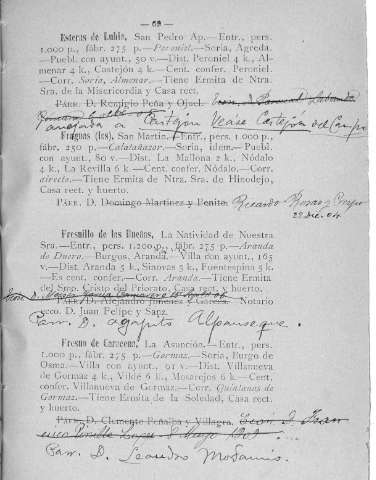 — 69 —
Esteras de Lubia, San Pedro Ap.—Entr., pers.
1.000 p., fábr. 275 p.—Peroniel.—Soria, Agreda.
—Puebl. con ayunt., 50 v.—Dist. Peroniel 4 k., Al-
menar 4 k., Castejón 4 k.—Cent. confer. Peroniel.
—Corr. Soria, Almenar.—Tiene Ermita de Ntra.
Sra. de la Misericordia y Casa rect.
Párr. D. Remigio Peña y Ojuel.
anejada a Castejón Vease Castejón del Campo
Fráguas (las), San Martín.—Entr., pers. 1.000 p.,
fábr. 250 p.—Calatañazor.—Soria, idem.—Puebl.
con ayunt., 80 v.—Dist. La Mallona 2 k., Nódalo
4 k., La Revilla 6 k.—Cent. confer. Nódalo.—Corr.
directo.—Tiene Ermita de Ntra. Sra. de Hinodejo,
Casa rect. y huerto.
Párr. D. Domingo Martínez y Benito. Ricardo
22 Dic. 04
Fresnillo de las Dueñas, La Natividad de Nuestra
Sra.—Entr., pers. 1.200 p., fábr. 275 p.—Aranda
de Duero.—Burgos, Aranda.—Villa con ayunt., 165
v.—Dist. Aranda 5 k., Sinovas 5 k., Fuentespina 5 k.
—Es cent. confer.—Corr. Aranda.—Tiene Ermita
del Smp. Cristo del Priorato, Casa rect. y huerto.
Párr. D. Alejandro Jiménez y García. Notario
ecco. D. Juan Felipe y Sanz.
Parr. D. Agapito Alpanseque.
Fresno de Caracena, La Asunción.—Entr., pers.
1.000 p., fábr. 275 p.—Gormaz.—Soria, Burgo de
Osma.—Villa con ayunt., 91 v.—Dist. Villanueva
de Gormaz 4 k., Vildé 6 k., Mosarejos 6 k.—Cent.
confer. Villanueva de Gormaz.—Corr. Quintanas de
Gormaz.—Tiene Ermita de la Soledad, Casa rect.
y huerto.
Párr. D. Clemente Peñalpa y Villagra. Ecón. D. Fran
cisco
Parr. D. Leandro